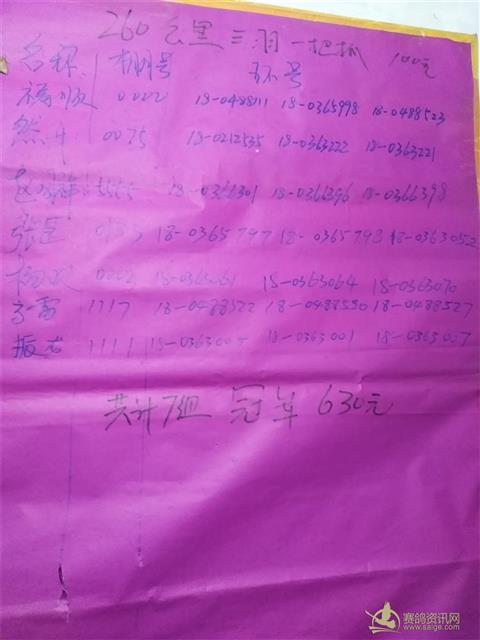 260公里三羽一把抓 100元
名称 棚号 环号
福顺 0002 18-0488711 18-0365998 18-0488523
然升 0075 18-0212535 18-0363222 18-0363221
18-0366301 18-0366396 18-0366398
张臣 18-0365797 18-0365798 18-0363052
0002 18-0363061 18-0363064 18-0363070
1717 18-0488522 18-0488530 18-0488527
振古 1111 18-0363001 18-0363007
共计7组 冠军 630元
赛鸽资讯网
www.saige.com